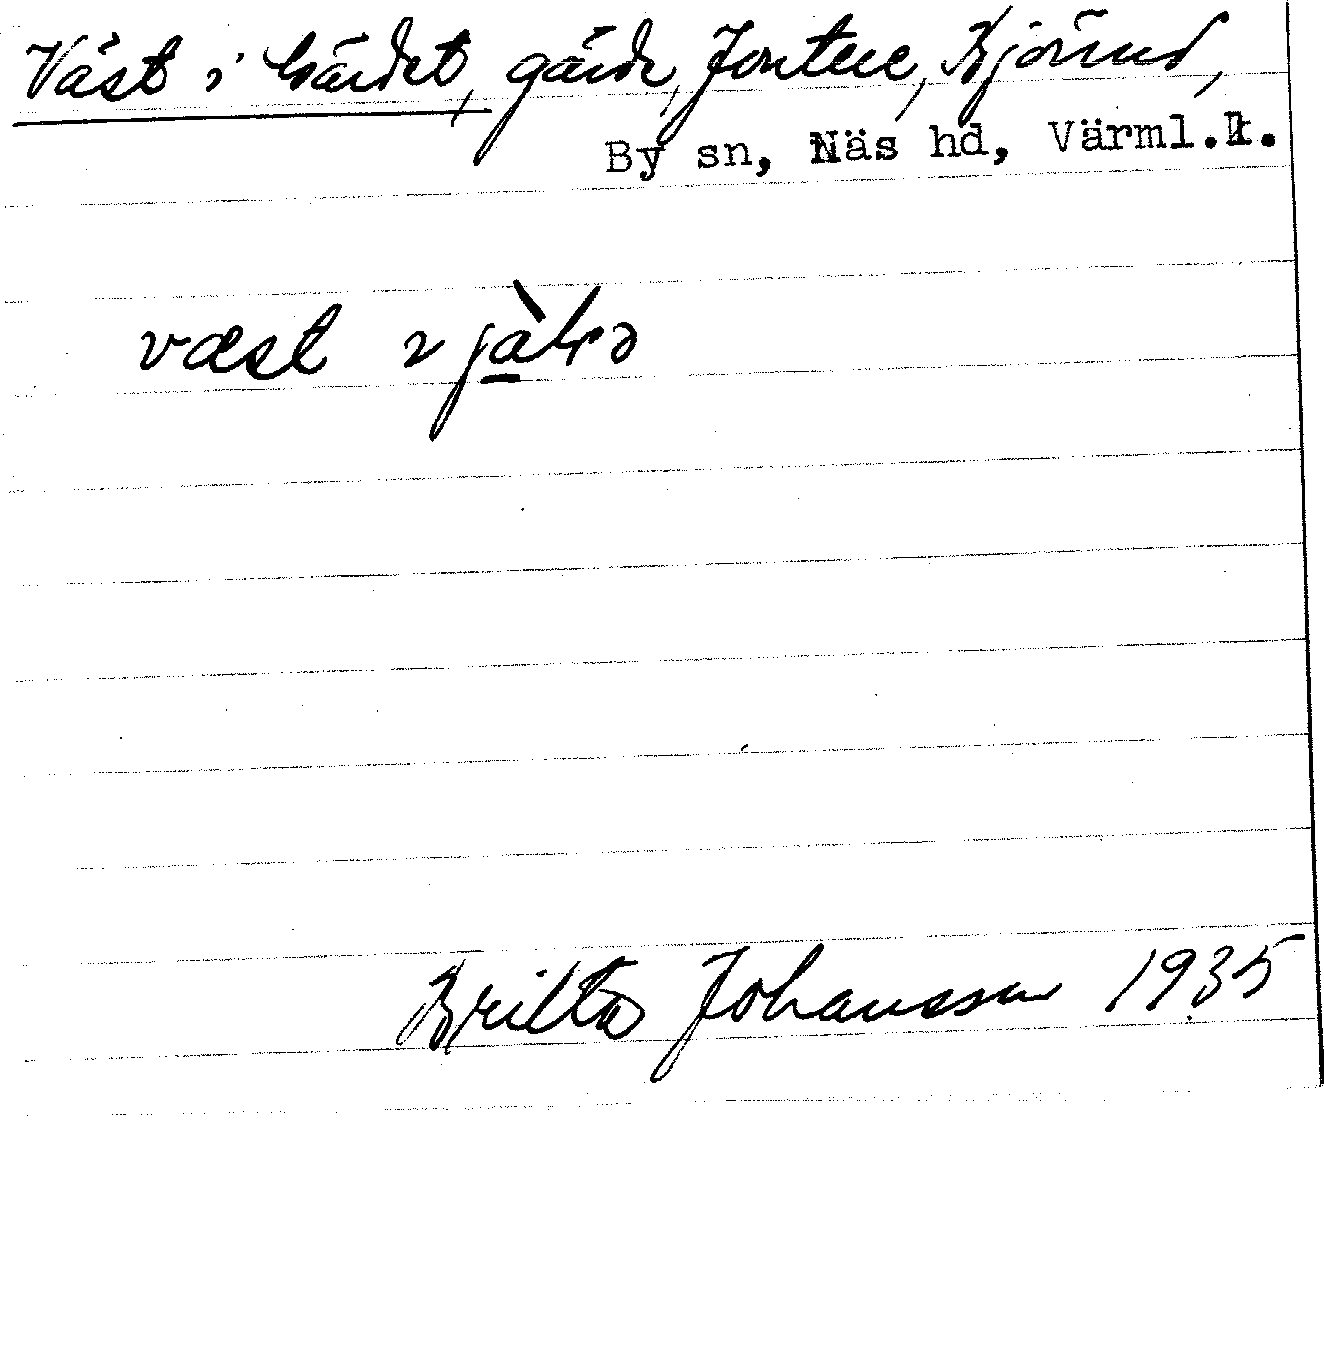 Väst i Gärdet, gärde, Jontese, Björnö,
By sn, Näs hd, Värml.l.
væst ɩ jàḷə
Britta Johansson 1935